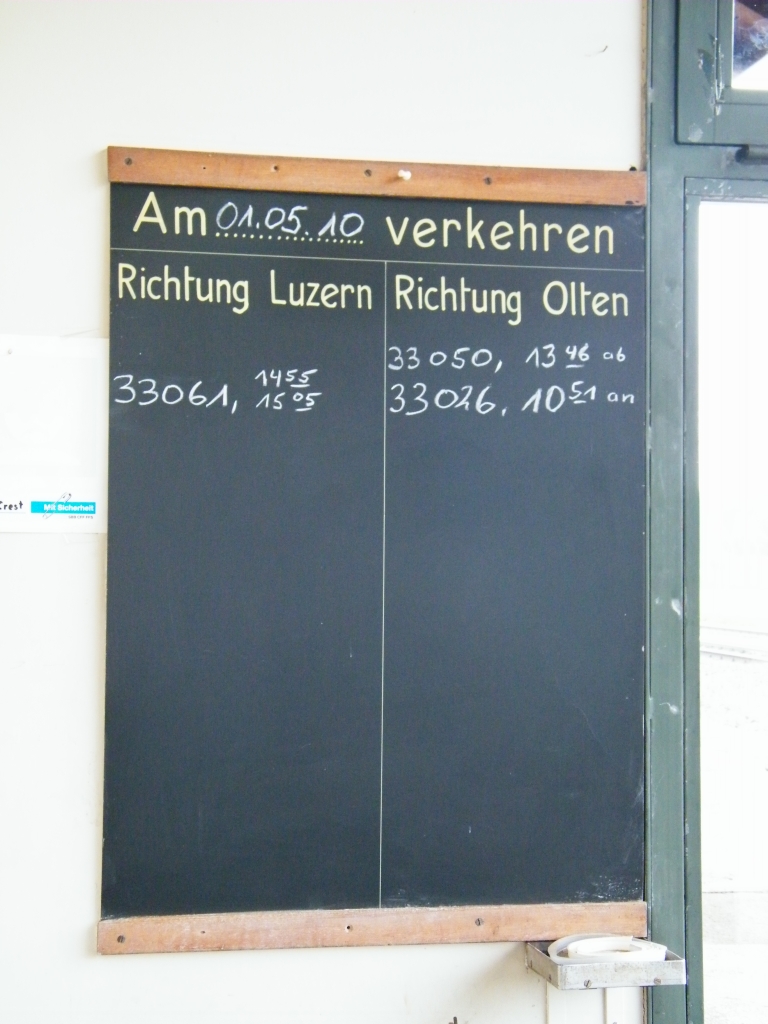 Am 01.05.10 verkehren
Richtung Luzern
33061, 14 55
15 05
Richtung Olten
33050, 13 46 ab
33026, 10 51 an
Crest
Mit Sicherheit